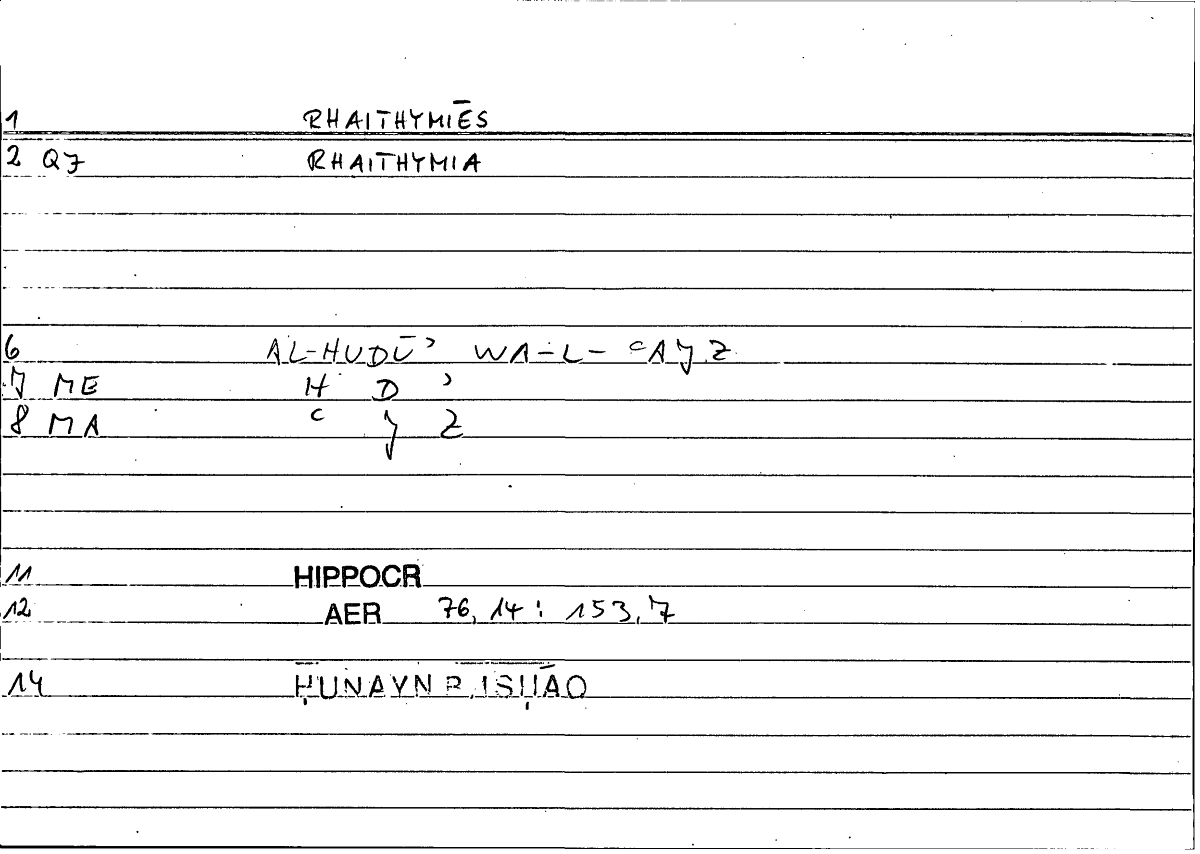 1 RHAITHYMIĒS
2 QJ RHAITHYMIA
6 AL-HUDŪʾ WA-L-ʿAJZ
7 ME H D ʾ
8 MA ʿ J Z
11 HIPPOCR
12 AER 76,14: 153,7
14 ḤUNAYN B. ISḤĀQ